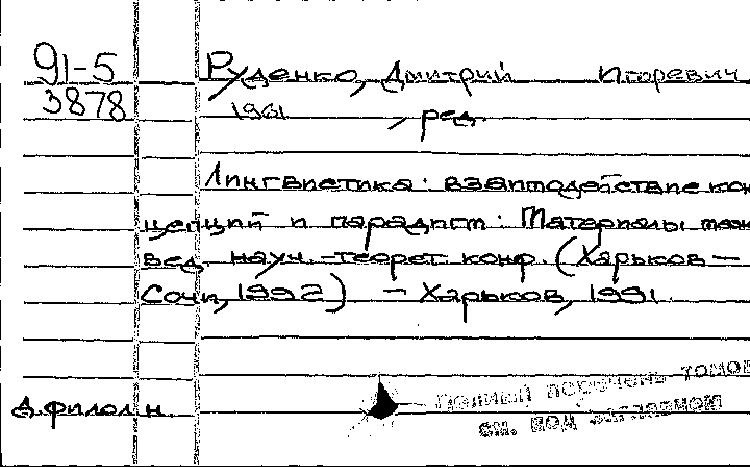 91-5
3878
Руденко, Дмитрий Игоревич
1961
, ред.
Лингвистика: взаимодействие кон
цепций и парадигм: Материалы меж
вед. науч.-теорет. конф. (Харьков –
Сочи, 1992) – Харьков, 1991.
Полный перечень томов
см. под заглавием
д.филол.н.